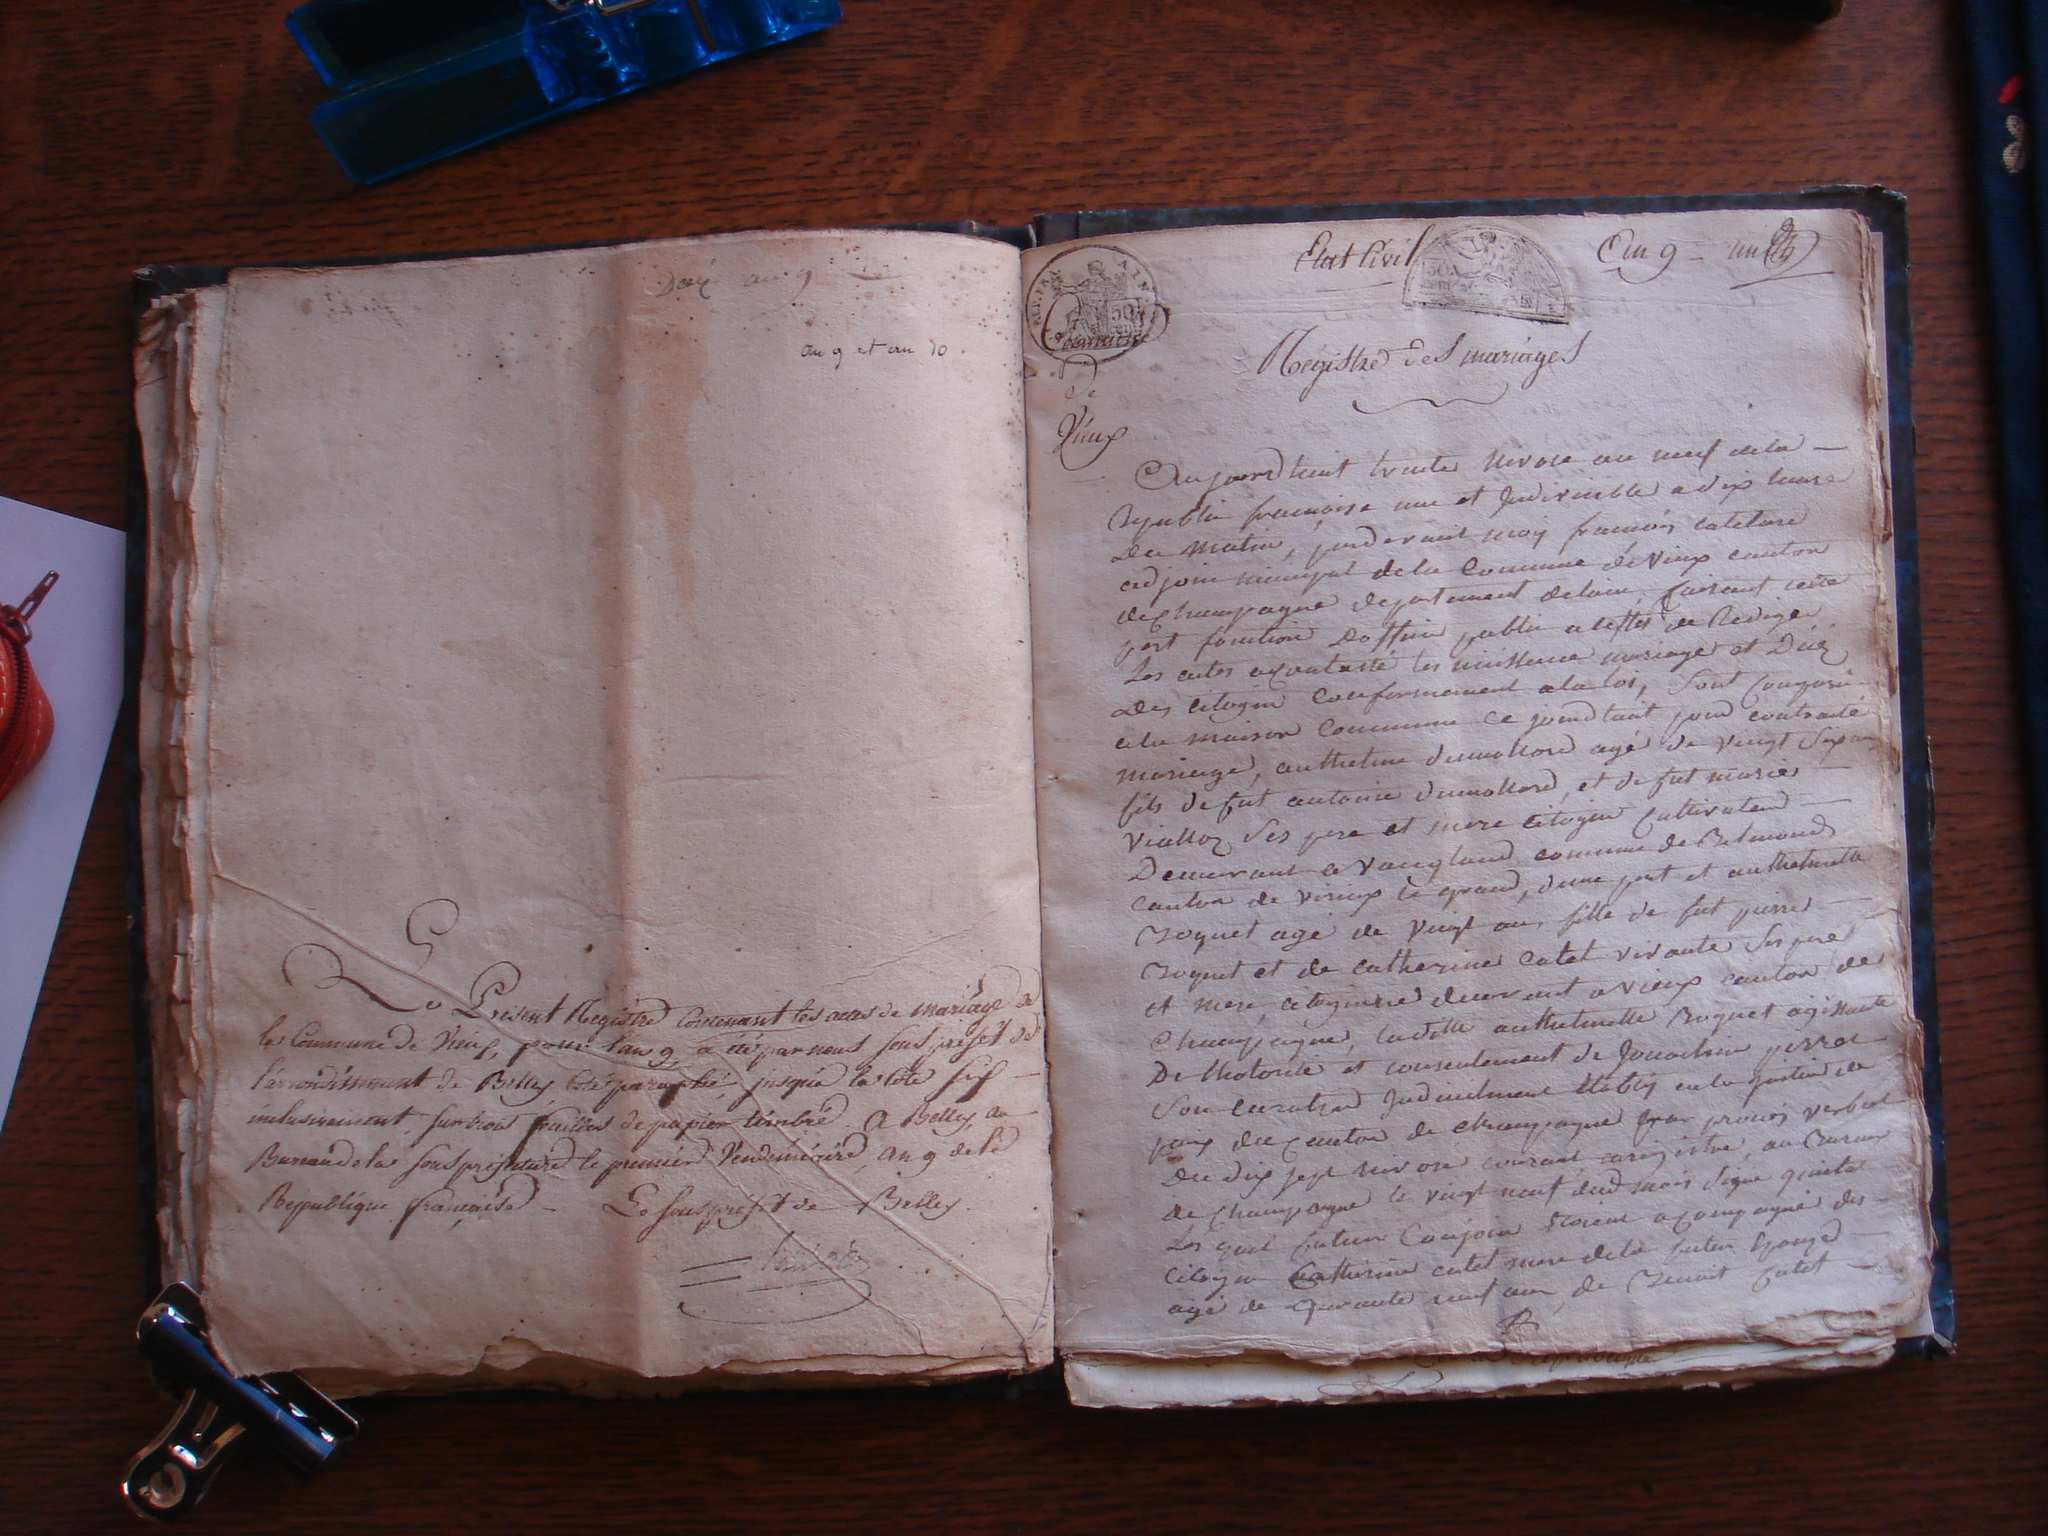 an 9
an 9 et an 10
Le Present Registre Contenant les actes de mariage de
la Commune de Vieux, pour l'an 9, a été par nous sous préfet de
l'arrondissement de Belley coté paraphé, jusqu'a la cote six
inclusivement, sur trois feuilles de papier timbré. A Belley, au
Bureau de la sous préfecture le premier Vendémiaire, an 9 de la
Republique française. Le sous préfet de Belley.
Etat Civil
An 9
50
Commune
de
Vieux
Régistre des mariages
Aujourd huit trente nivose an neuf de la
Republic francoise une et Indivisible a dix heure
du matin, pardevant moy francois catelare
adjoin municipal de la Commune de Vieux canton
de champagne departement de lain, faisant cette
part fonction doffcier public a leffet de Rediger
Les actes a constaté les naissence mariage et Décé
Des citoyin conformement a la loi, sont comparu
a la maison commune ce jourdhuit pour contracté
mariage, anthelme dumollard agé de vingt six an
fils de fut antoine dumollard, et de fut marie
Viallon ses pere et mere citoyin cultivateur
Demeurant a commune de Belmond
canton de virieux le grand, d'une part et anthelmette
Roguet agé de vingt an, fille de fut pierre
Roguet et de catherine catet vivante ses pere
et mere, citoyinne demeurant a vieux canton de
Champagne, la ditte anthelmette Roguet agissante
De lhotorité et consentement de Joachin perret
Son curateur Judicielment établi en la justice de
paix du canton de champagne par procés verbal
du dix sept nivose courant enregistre, au Bureau
de champagne le vingt neuf dud mois signe
Les quel futur conjoin etoient acompagné des
citoyin Catherine catet mere de la futur Epouse
agé de quarante neuf an, de Benoit Catet